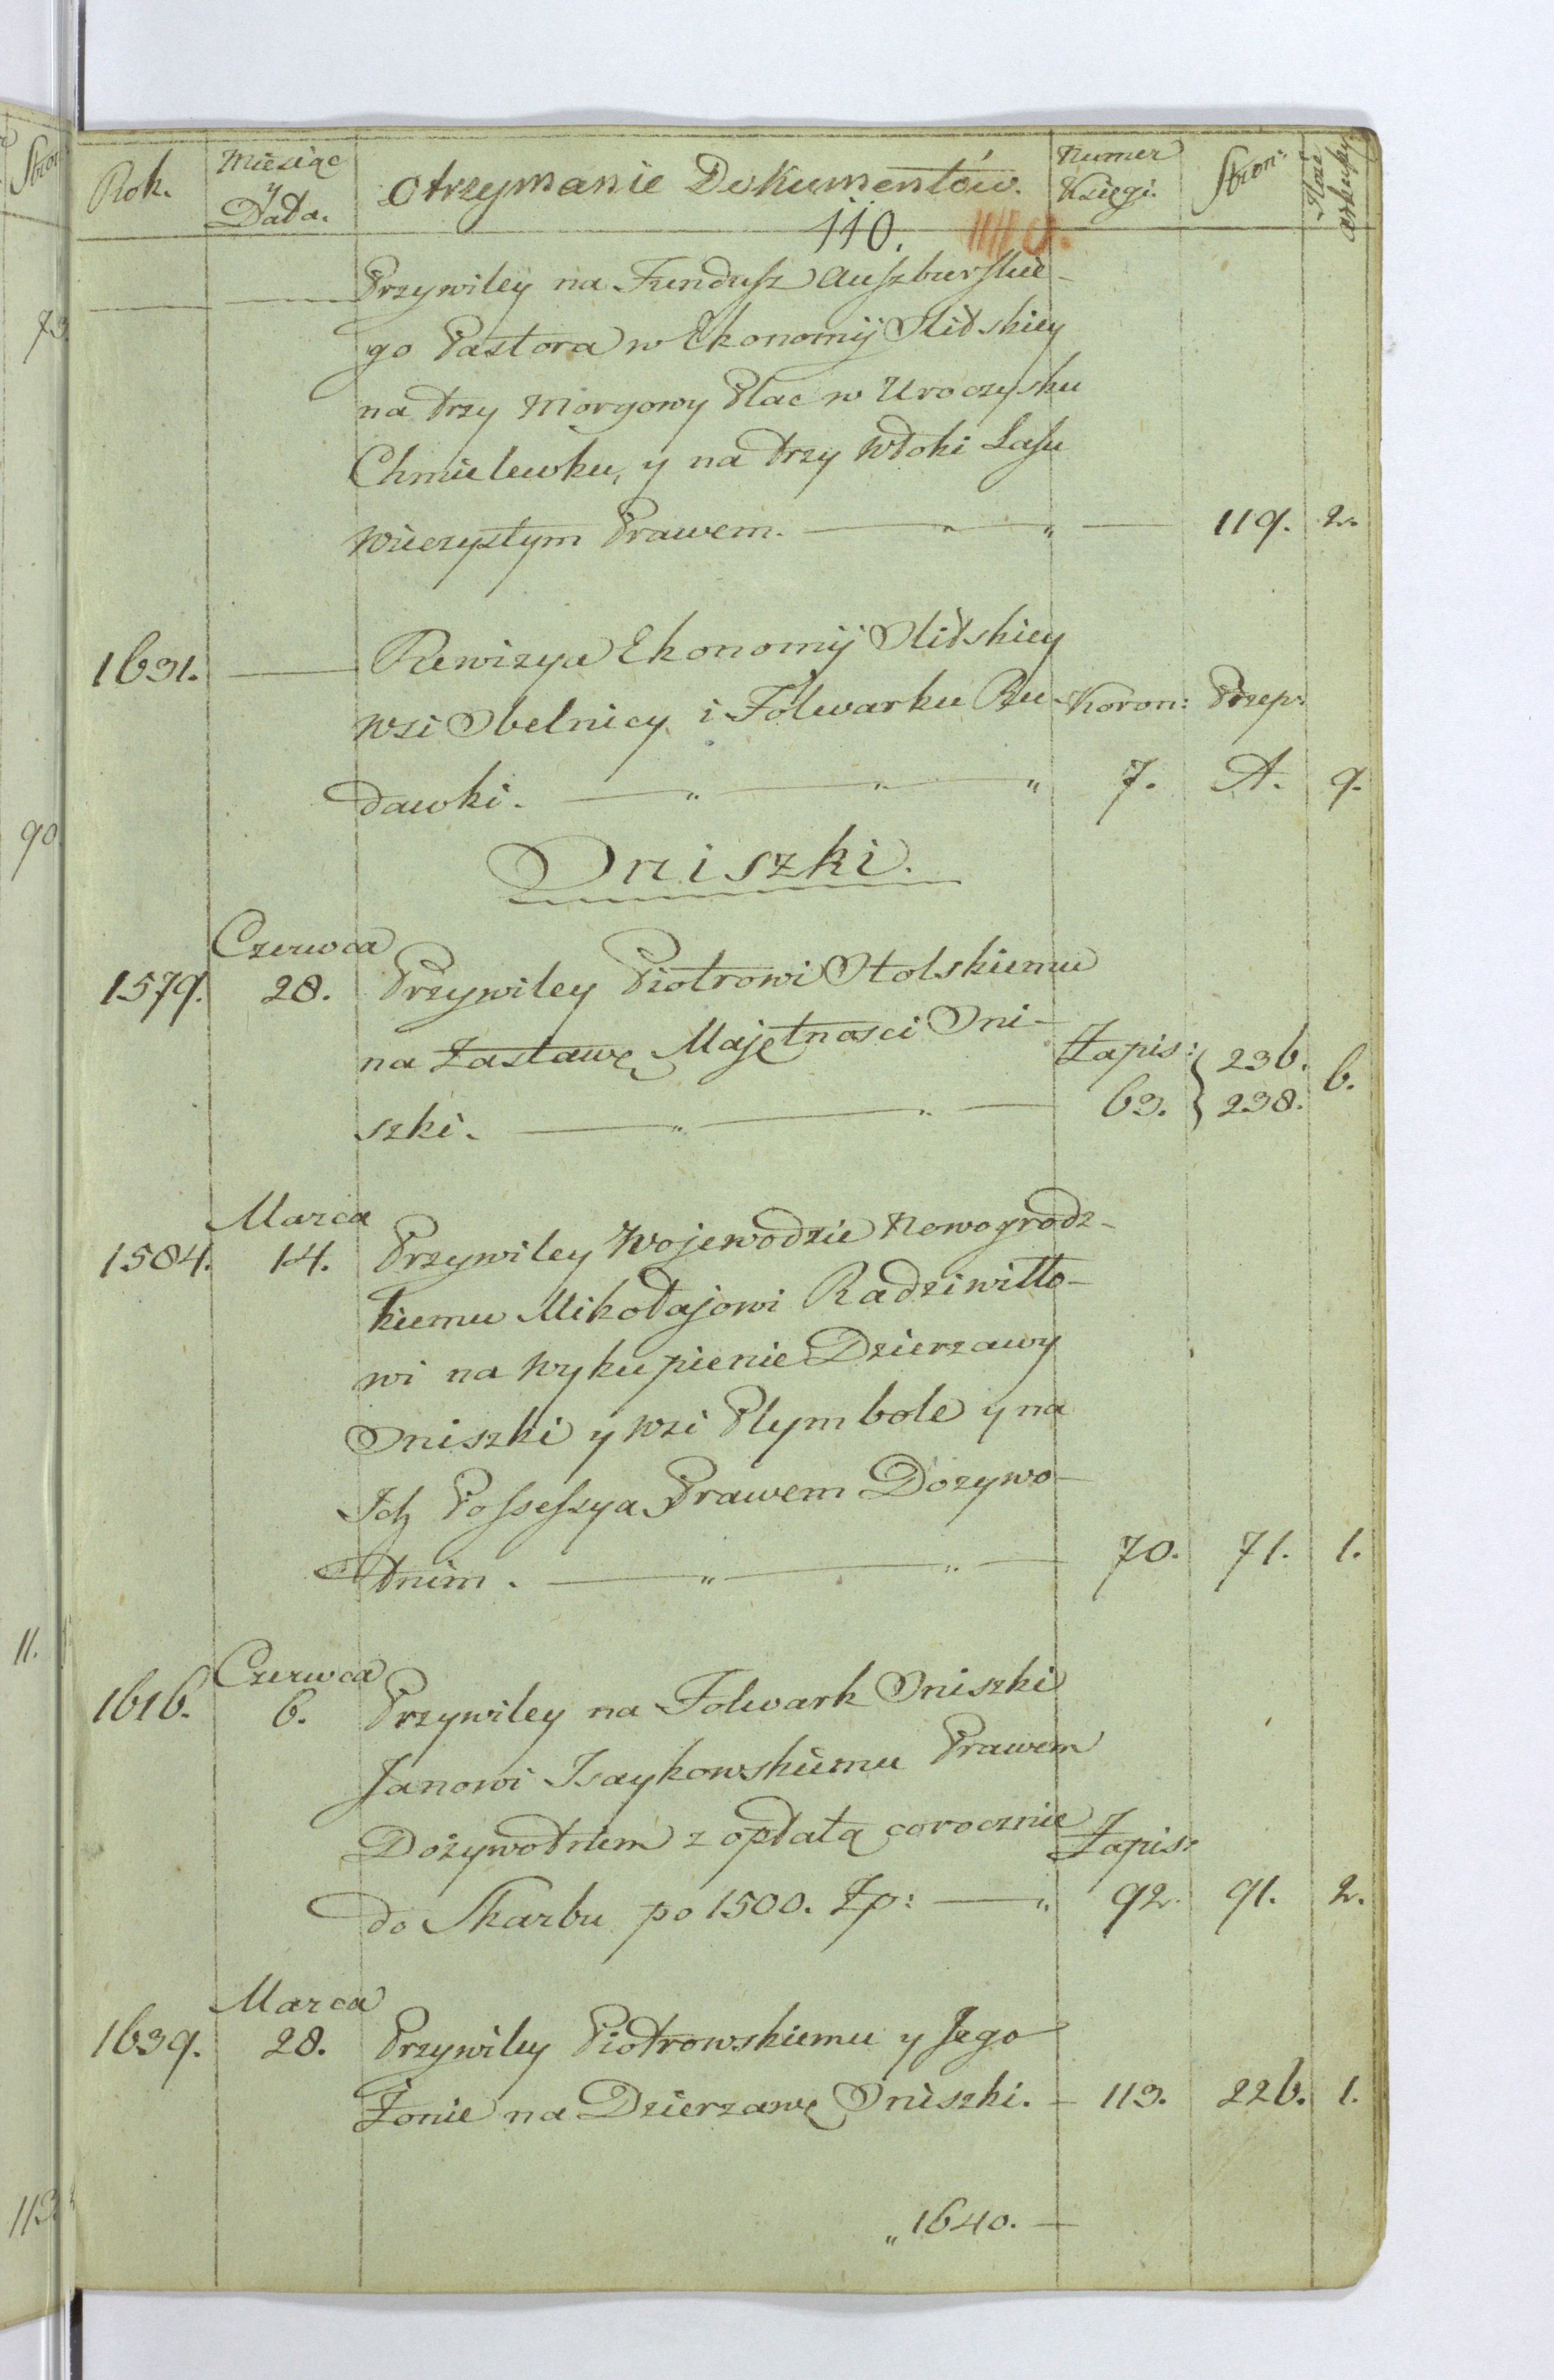 Rok. Miesiąc y Data. Otrzymanie Dokumentów. Numer Księgi. Stron: Ilość arkuszy
110.
Przywiley na Fundusz Auszburskie-
go Pastora w Ekonomij Olitskiey
na trzy Morgowy Plac w Uroczysku
Chmielewku, y na trzy Włoki Lasu
Wieczystym Prawem. — " — " — 119. 2.
1631. — Rewizya Ekonomij Olitskiey
wsi Obelnicy i Folwarku Ru- Koron: Przep:
dawki. — " — " — " 7. A. 9.
Oniszki.
Czerwca
1579. 28. Przywiley Piotrowi Stolskiemu
na Zastawę Majętnosci Oni- Zapis: 236.
szki. — " — " — 63. 238. 6.
Marca
1584. 14. Przywiley Wojewodzie Nowogrodz-
kiemu Mikołajowi Radziwiłło-
wi na Wykupienie Dzierzawy
Oniszki y wsi Plymbole y na
Ich Possessya Prawem Dozywo-
tnim. — " — " — 70. 71. 1.
Czerwca
1616. 6. Przywiley na Folwark Oniszki
Janowi Isaykowskiemu Prawem
Dożywotnem z opłatą corocznie Zapis:
do Skarbu po 1500. Zp: — " 92. 91. 2.
Marca
1639. 28. Przywiley Piotrowskiemu y Jego
Żonie na Dzierzawę Oniszki. — 113. 226. 1.
" 1640. —